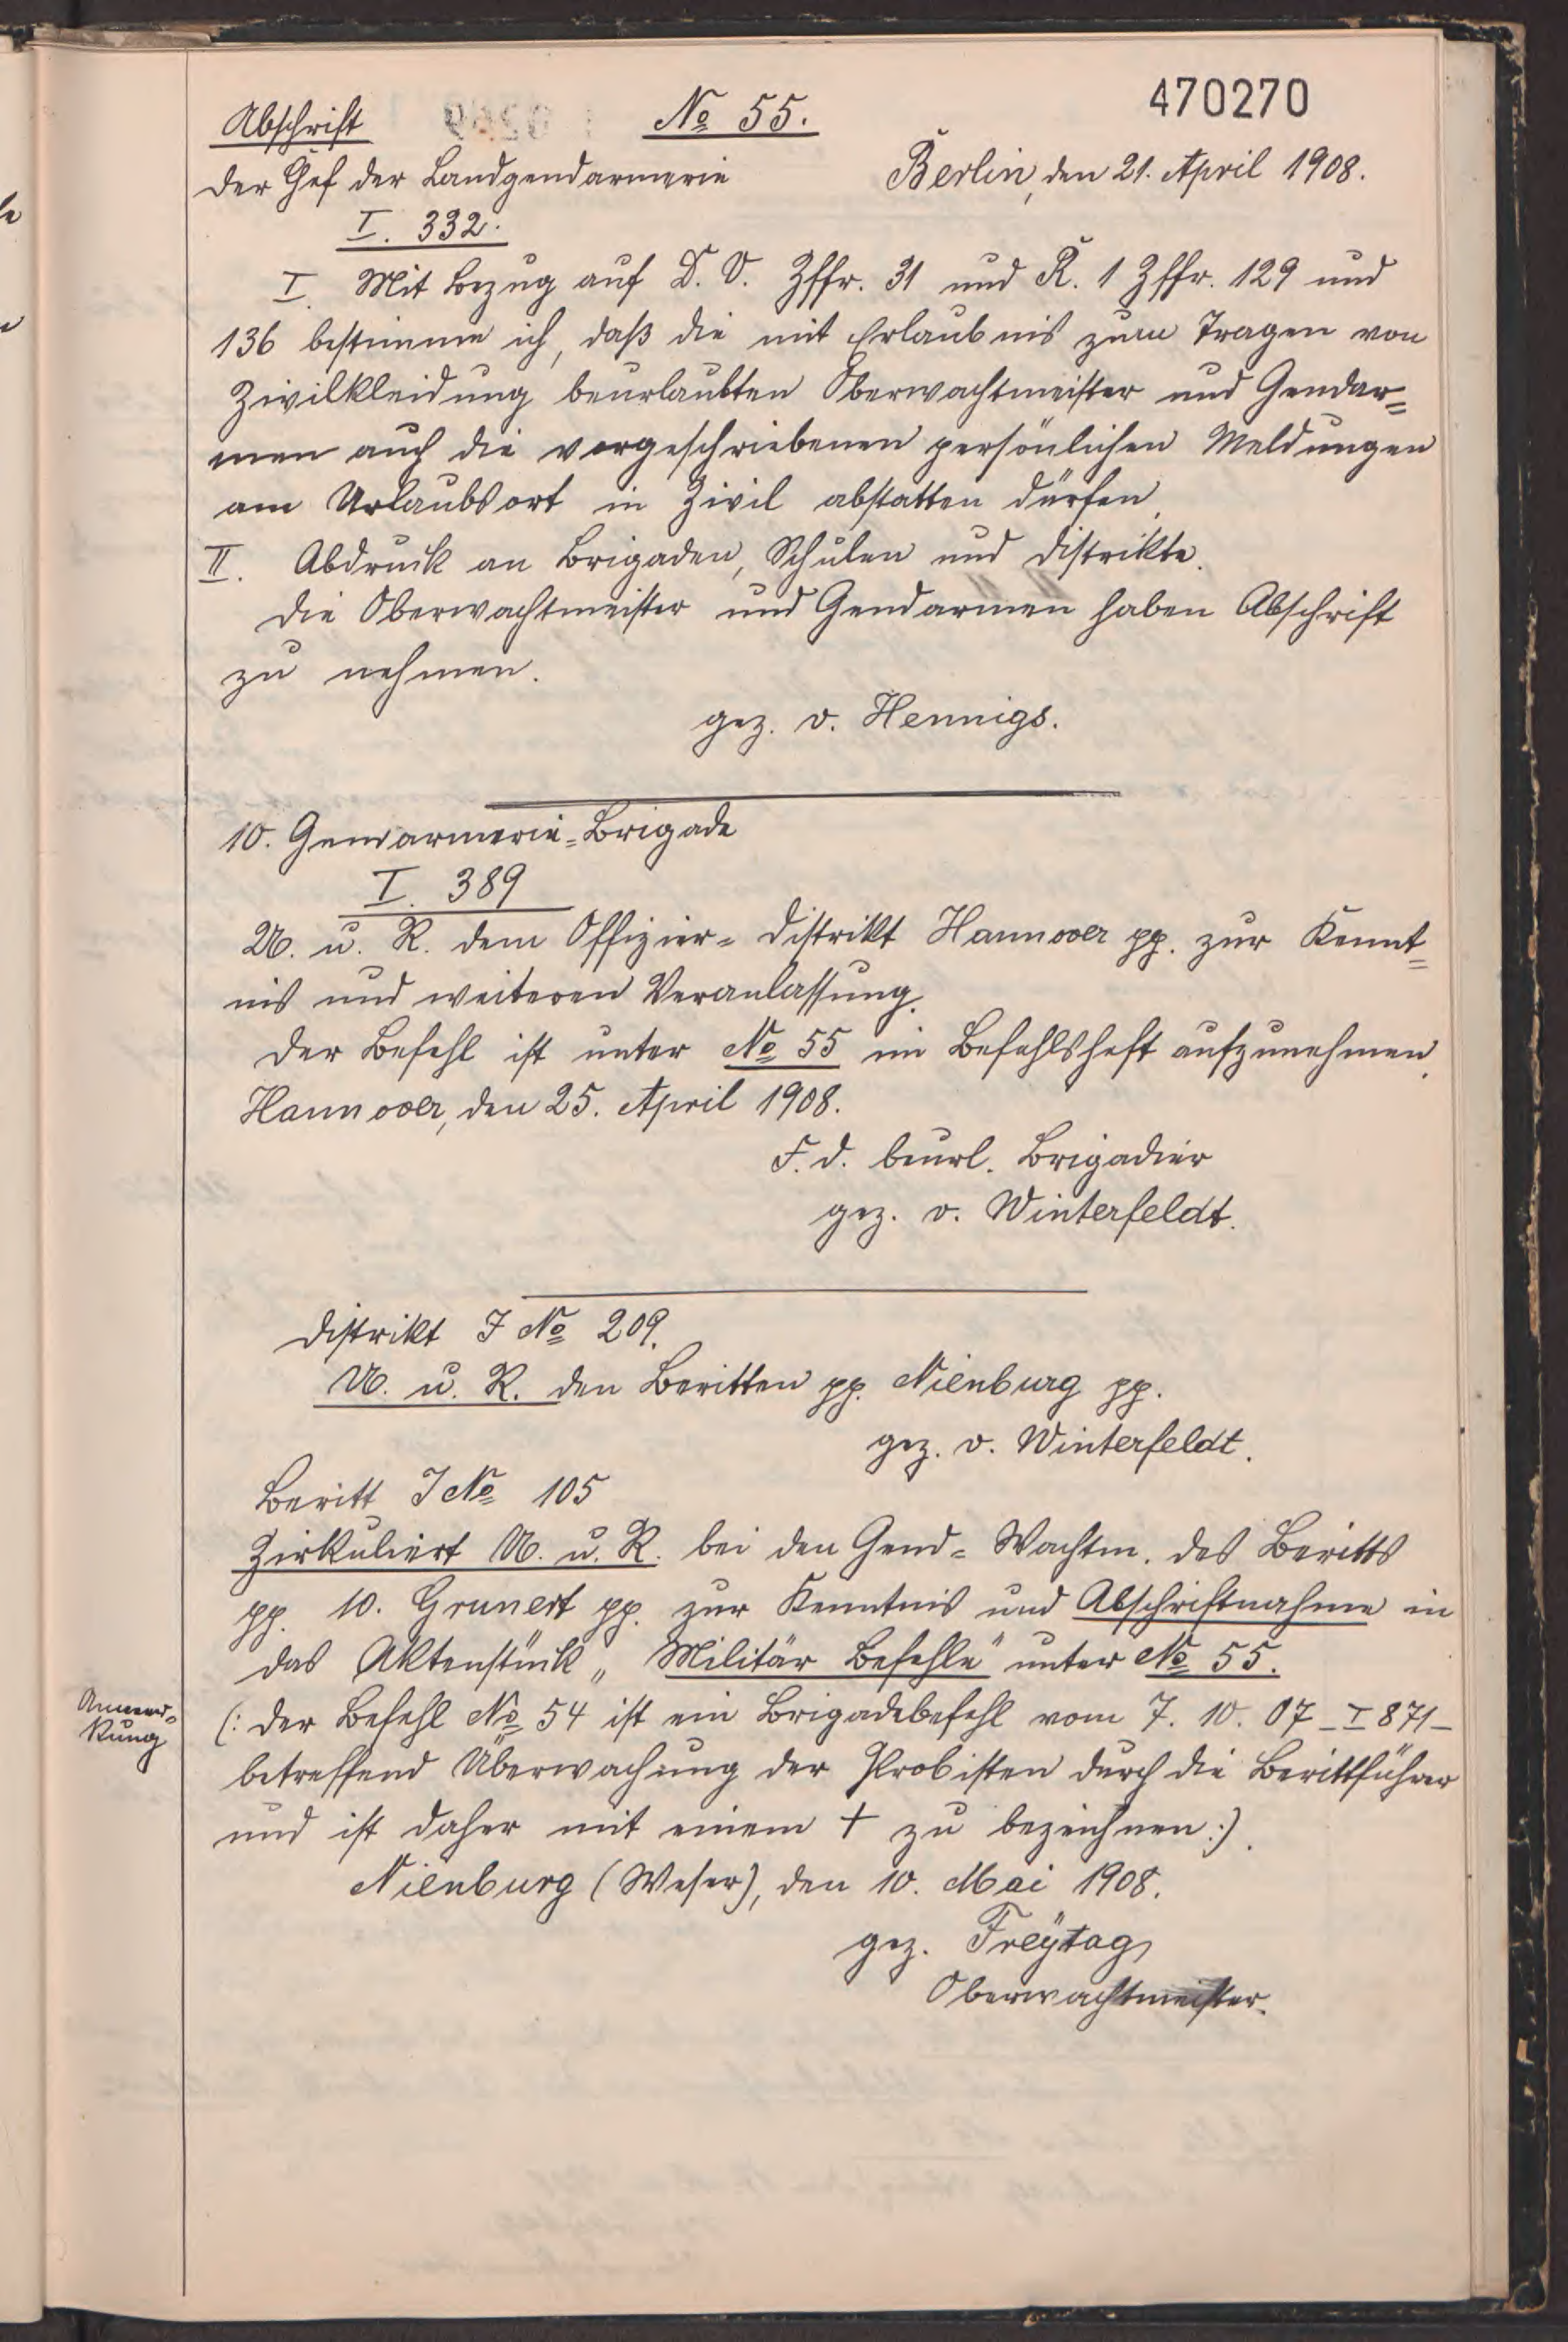 470270
Abschrift № 55.
Der Chef der Landgendarmerie Berlin, den 21. April 1908.
I. 332.
I. Mit Bezug auf D. V. Ziffr. 31 und K. 1 Ziffr. 129 und
136 bestimme ich, daß die mit Erlaubnis zum Tragen von
Zivilkleidung beurlaubten Oberwachtmeister und Gendar=
men auch die vorgeschriebenen persönlichen Meldungen
am Urlaubsort in Zivil abstatten dürfen.
II. Abdruck an Brigaden, Schulen und Distrikte.
Die Oberwachtmeister und Gendarmen haben Abschrift
zu nehmen.
gez. v. Hennigs.
10. Gendarmerie=Brigade
I. 389
U. u. R. dem Offizier=Distrikt Hannover pp. zur Kennt=
nis und weiteren Veranlassung.
Der Befehl ist unter № 55 im Befehlsheft aufzunehmen.
Hannover, den 25. April 1908.
F. d. beurl. Brigadier
gez. v. Winterfeldt.
Distrikt J № 209.
U. u. R. den Beritten pp. Nienburg pp.
gez. v. Winterfeldt.
Beritt J № 105
Zirkuliert U. u. R. bei den Gend=Wachtm. des Beritts
pp. 10. Grunert pp. zur Kenntnis und Abschriftnahme in
das Aktenstück „Militär Befehle" unter № 55.
Anmer=
kung
(: Der Befehl № 54 ist ein Brigadebefehl vom 7. 10. 07 – I 871 –
betreffend Überwachung der Probisten durch die Berittführer
und ist daher mit einem + zu bezeichnen :).
Nienburg (Weser), den 10. Mai 1908.
gez. Freÿtag
Oberwachtmeister.